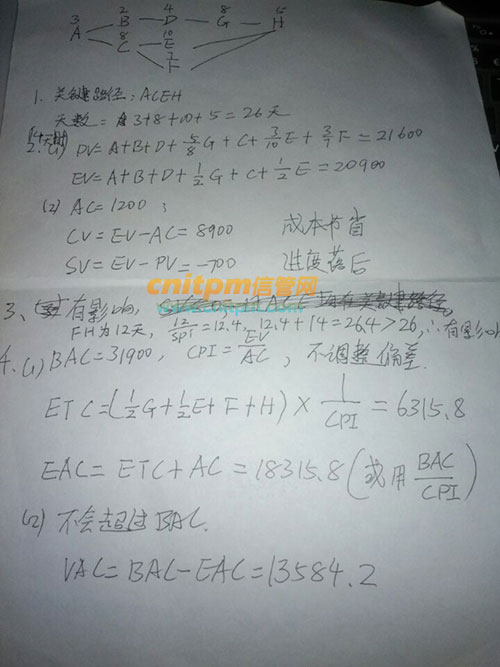 3 2 4 8 5
A B D G H
8 10
C E
7
F
1. 关键路径: ACEH
天数 = 3+8+10+5 = 26天
14天时
2. (1) PV = A+B+D+5/8 G+C+3/10 E+3/7 F = 21600
EV = A+B+D+1/2 G+C+1/2 E = 20900
(2) AC = 1200;
CV = EV-AC = 8900 成本节省
SV = EV-PV = -700 进度落后
cnitpm信管网
3、有影响,
FH为12天, 12/SPI = 12.4, 12.4+14 = 26.4 > 26, ∴有影响
4. (1) BAC = 31900, CPI = EV/AC, 不调整偏差.
ETC = (1/2 G+1/2 E+F+H) × 1/CPI = 6315.8
EAC = ETC+AC = 18315.8 (或用 BAC/CPI)
(2) 不会超过BAC.
VAC = BAC-EAC = 13584.2